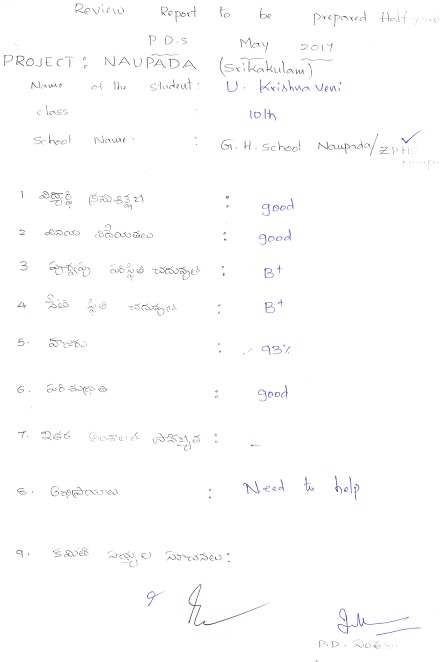 Review Report to be prepared Half
P.D.S May 2017
PROJECT : NAUPADA (Srikakulam)
Name of the Student : U. Krishnaveni
class : 10th
School Name : G.H. School Naupada/ZPHS
1 విద్యార్థి క్రమశిక్షణ : good
2 వినయ విధేయతలు : good
3 పూర్వపు పరిస్థితి చదువుల : B+
4 నేటి స్థితి చదువుల : B+
5. హాజరు : 93%
6. పరిశుభ్రత : good
7. ఇతర అంశాలలో ప్రావీణ్యత : -
8. అభిప్రాయాలు : Need to help
9. కమిటీ సభ్యుల సూచనలు :
P.D.